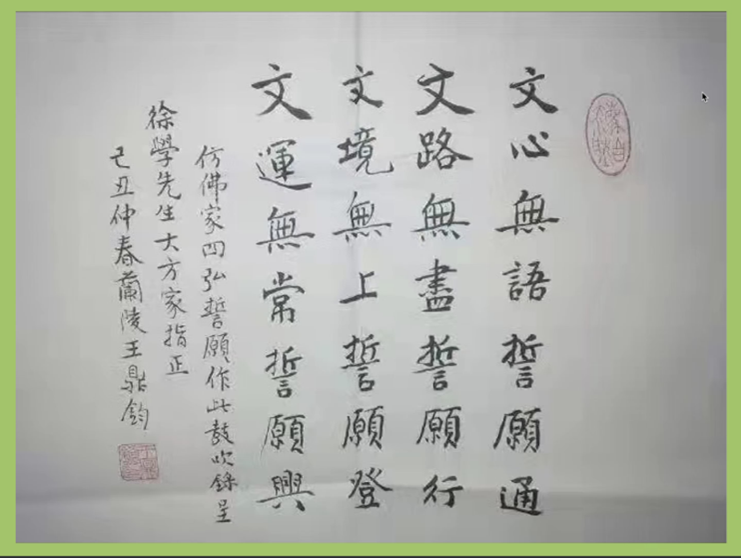 文心無語誓願通
文路無盡誓願行
文境無上誓願登
文運無常誓願興
仿佛家四弘誓願作此鼓吹錄呈
徐學先生大方家指正
己丑仲春蘭陵王鼎鈞